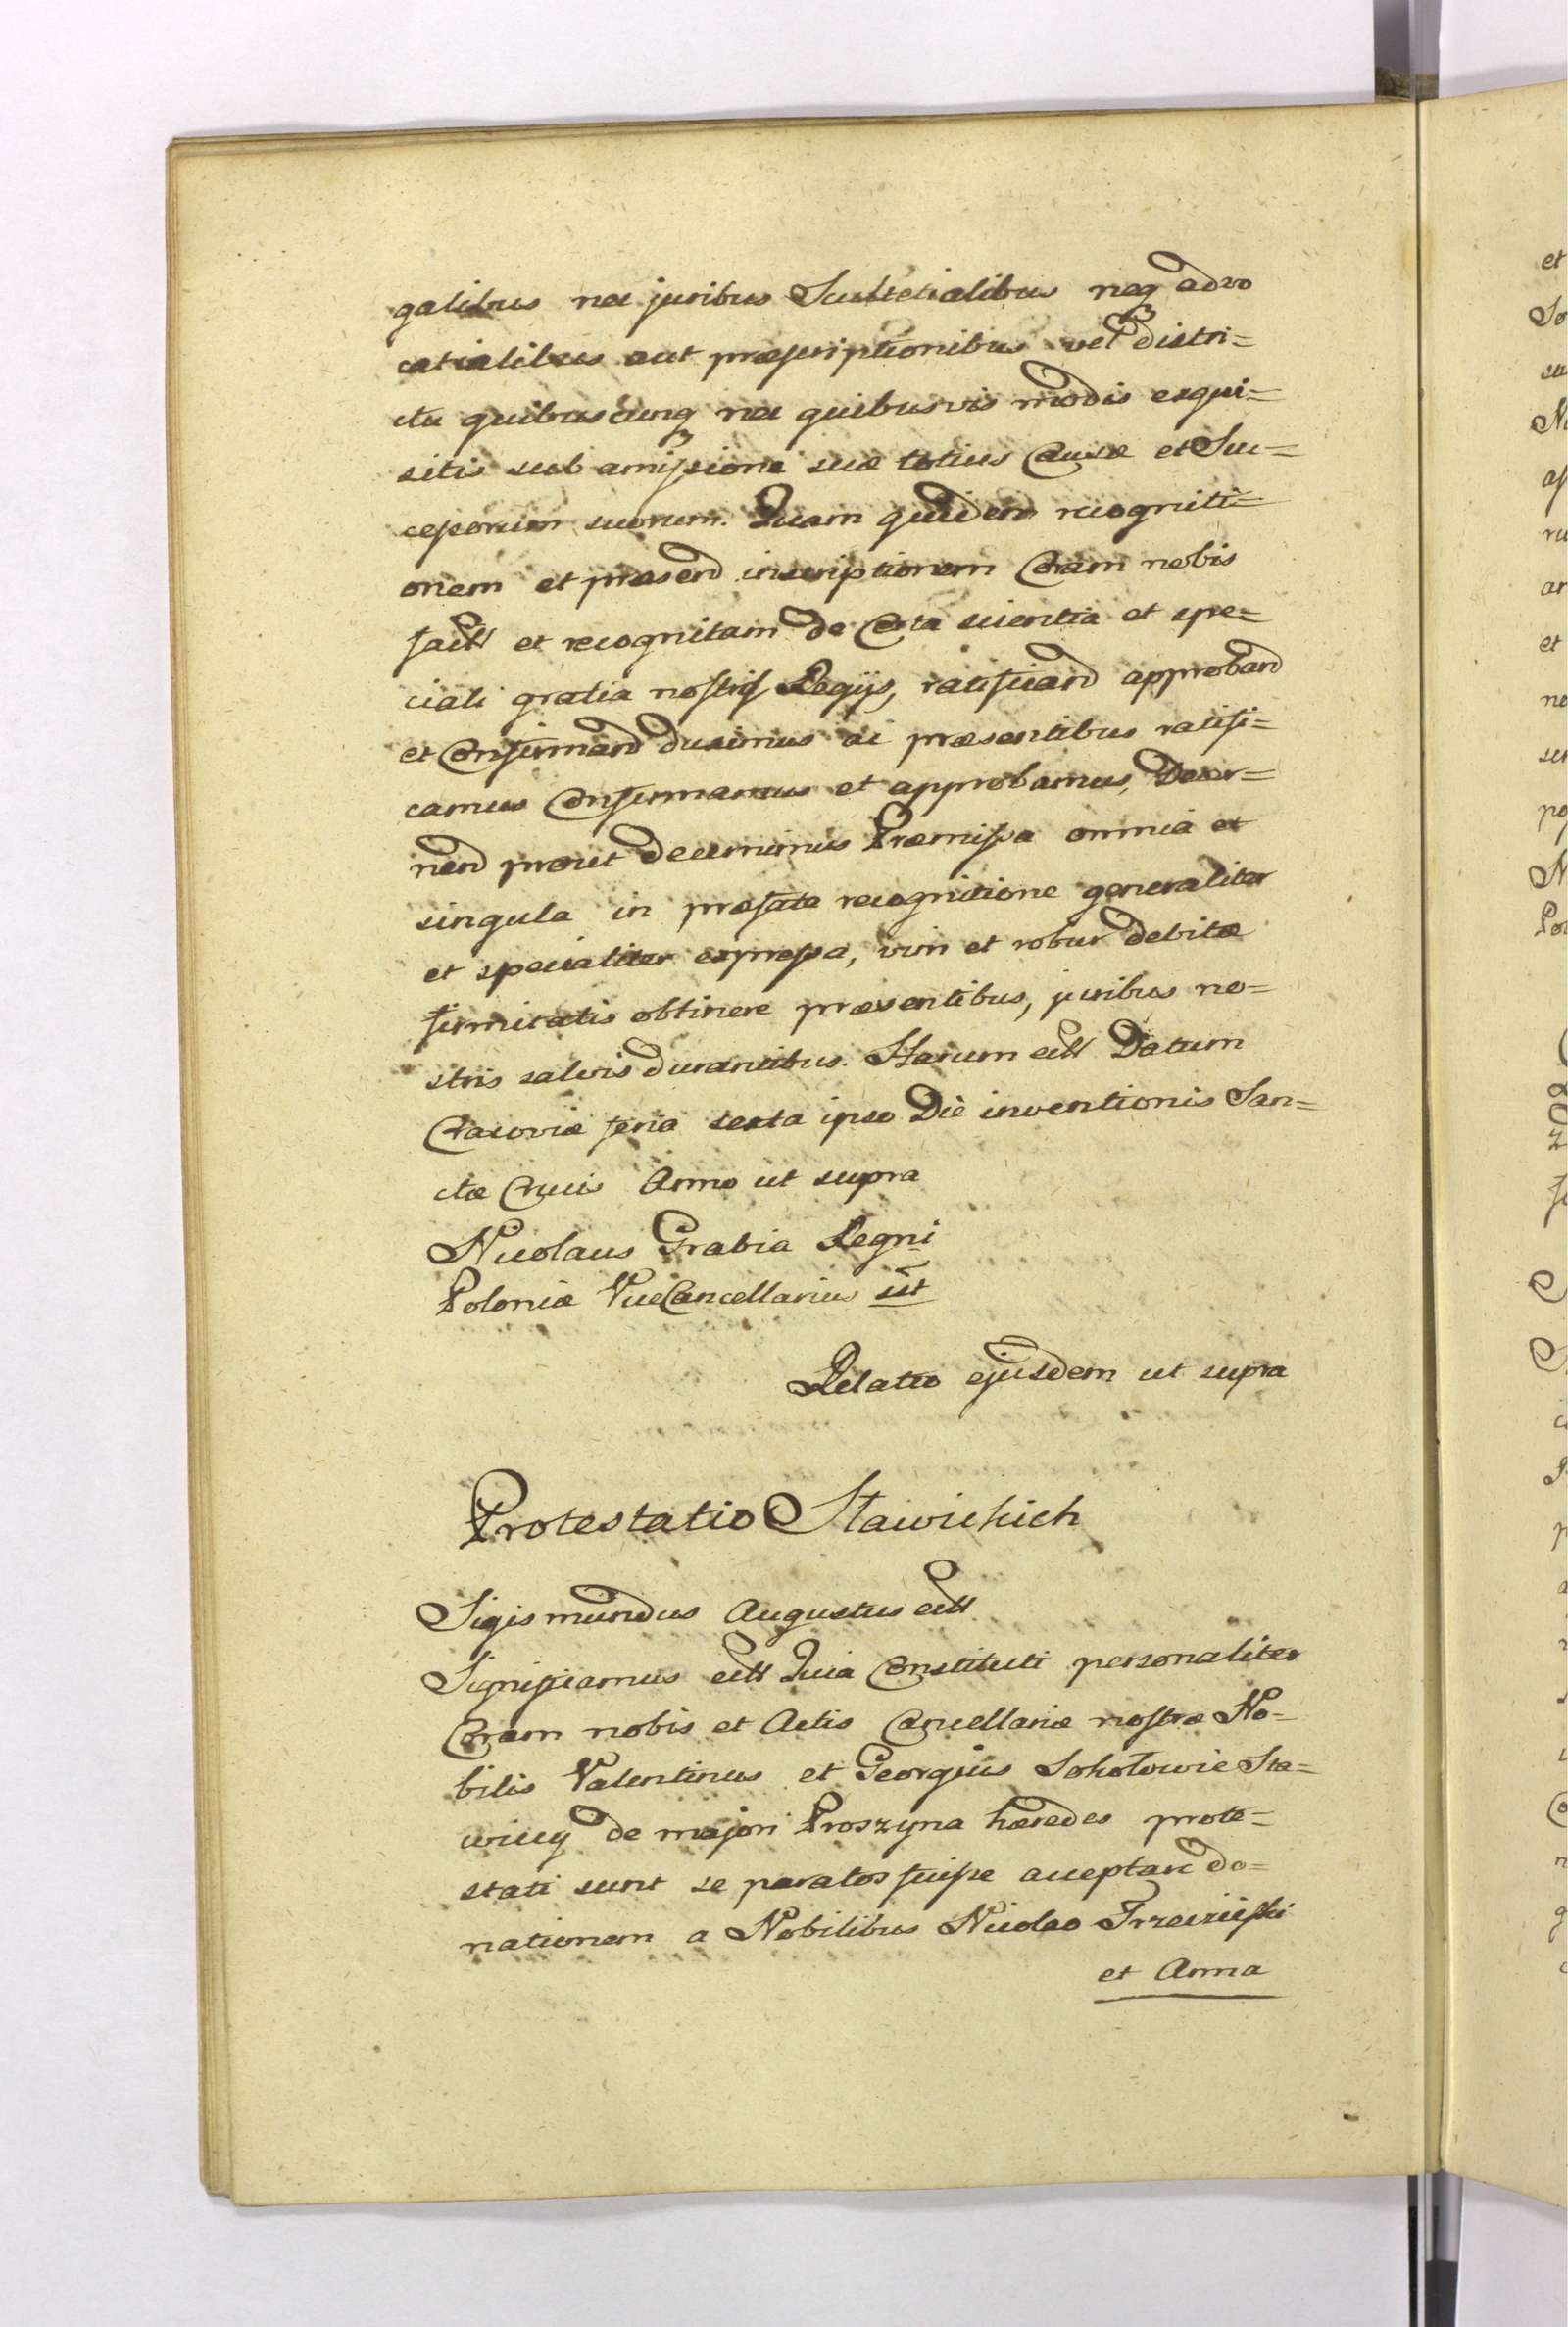 galibus nec juribus Scultetialibus neq advo
catialibus aut præscriptionibus vel distri=
ctu quibuscunq nec quibusvis modis exqui=
sitis sub amissione suæ totius Causæ et Suc=
cessorum suorum. Quam quidem recogniti=
onem et præsend inscriptionem Coram nobis
factt et recognitam de Certa scientia et spe=
ciali gratia nostris Regijs, ratificand approband
et Confirmand duximus ac præsentibus ratifi=
camus Confirmamus et approbamus, Decer=
nend prout decernimus Præmissa omnia et
singula in præfata recognitione generaliter
et specialiter expressa, vim et robur debitæ
firmitatis obtinere præsentibus, juribus no=
stris salvis durantibus. Harum ettt Datum
Cracoviæ feria sexta ipso Die inventionis San=
ctæ Crucis Anno ut supra
Nicolaus Grabia Regni
Poloniæ ViceCancellarius sst
Relatio ejusdem ut supra
Protestatio Stawickich
Sigismundus Augustus ettt
Significamus ettt Quia Constituti personaliter
Coram nobis et Actis Cancellariæ nostræ No=
bilis Valentinus et Georgius Sokołowie Sta=
wiccy de majori Proszyna hæredes prote=
stati sunt se paratos fuisse acceptare do=
nationem a Nobilibus Nicolao
et Anna